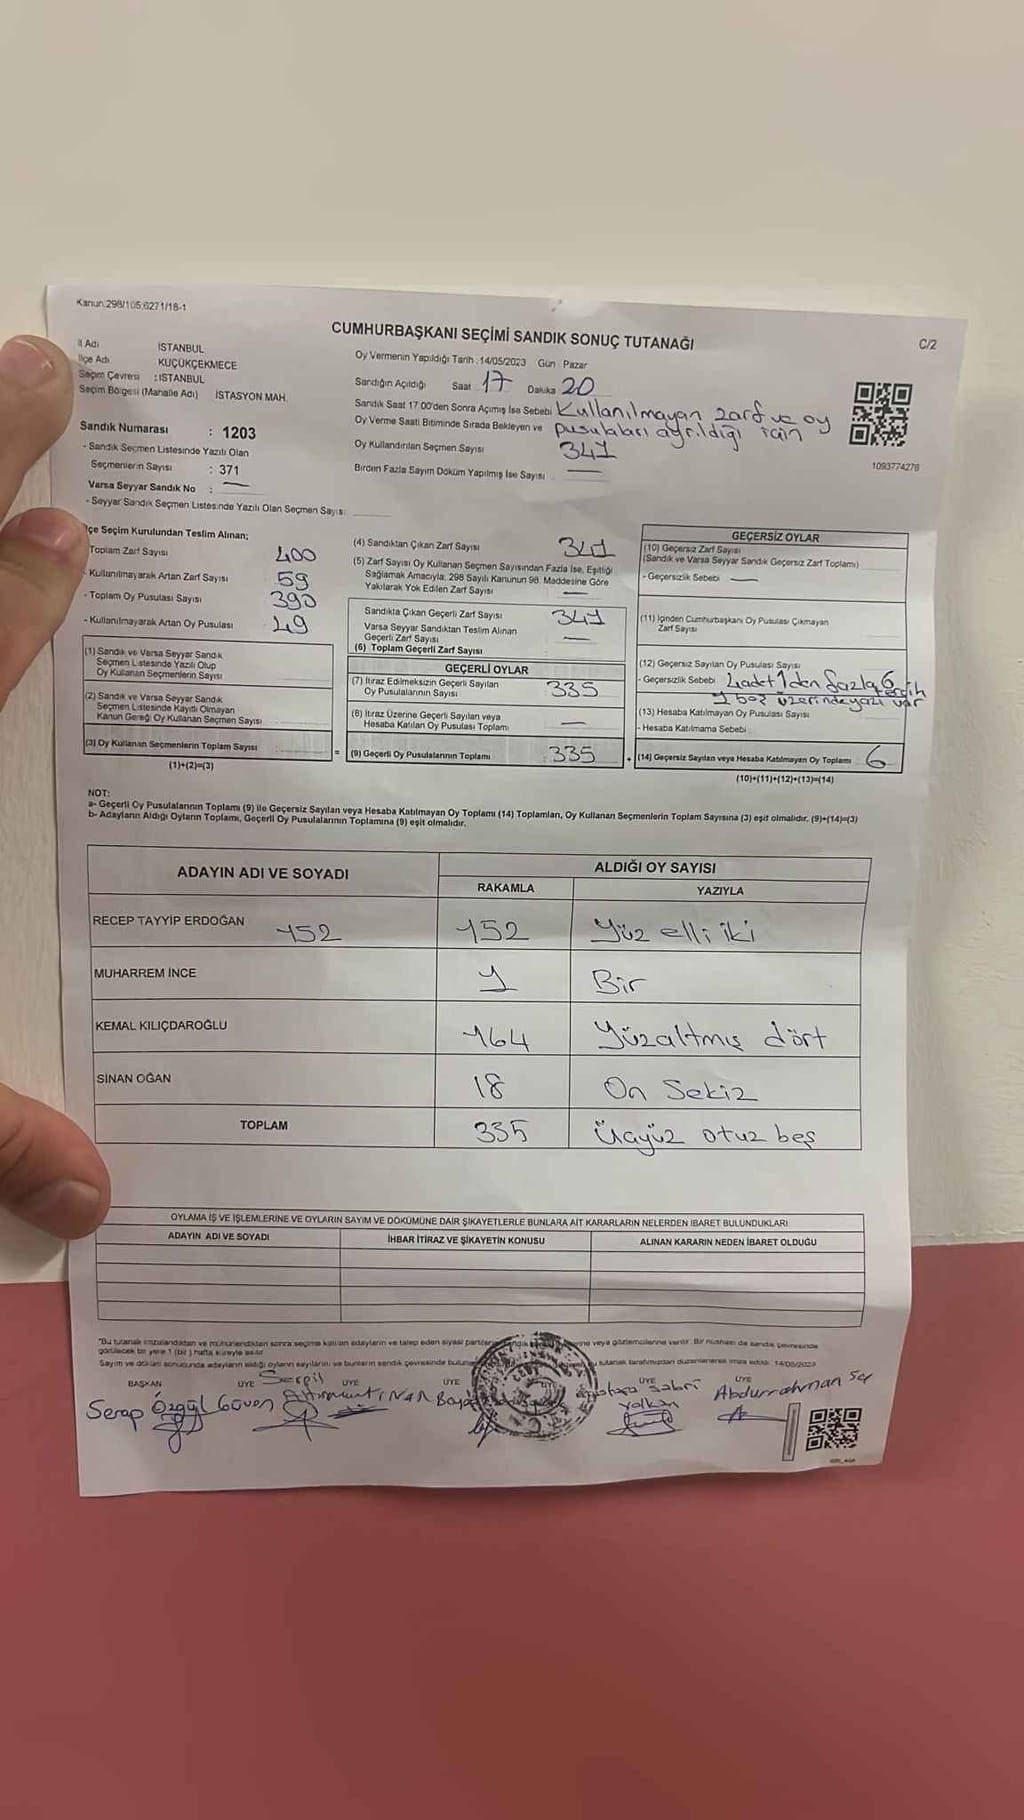 Kanun.298/105,6271/18-1
CUMHURBAŞKANI SEÇİMİ SANDIK SONUÇ TUTANAĞI
C/2
İl Adı İSTANBUL
İlçe Adı KÜÇÜKÇEKMECE
Seçim Çevresi : İSTANBUL
Seçim Bölgesi (Mahalle Adı) İSTASYON MAH.
Sandık Numarası : 1203
- Sandık Seçmen Listesinde Yazılı Olan
Seçmenlerin Sayısı : 371
Varsa Seyyar Sandık No :
- Seyyar Sandık Seçmen Listesinde Yazılı Olan Seçmen Sayısı:
Oy Vermenin Yapıldığı Tarih : 14/05/2023 Gün Pazar
Sandığın Açıldığı Saat 17 Dakika 20
Sandık Saat 17.00'den Sonra Açımış İse Sebebi Kullanılmayan zarf ve oy
pusulaları ayrıldığı için
Oy Verme Saati Bitiminde Sırada Bekleyen ve
Oy Kullandırılan Seçmen Sayısı 341
Birden Fazla Sayım Döküm Yapılmış İse Sayısı
1093774276
İlçe Seçim Kurulundan Teslim Alınan;
Toplam Zarf Sayısı 400
- Kullanılmayarak Artan Zarf Sayısı 59
- Toplam Oy Pusulası Sayısı 390
- Kullanılmayarak Artan Oy Pusulası 49
(1) Sandık ve Varsa Seyyar Sandık
Seçmen Listesinde Yazılı Olup
Oy Kullanan Seçmenlerin Sayısı
(2) Sandık ve Varsa Seyyar Sandık
Seçmen Listesinde Kayıtlı Olmayan
Kanun Gereği Oy Kullanan Seçmen Sayısı
(3) Oy Kullanan Seçmenlerin Toplam Sayısı
(1)+(2)=(3)
(4) Sandıktan Çıkan Zarf Sayısı 341
(5) Zarf Sayısı Oy Kullanan Seçmen Sayısından Fazla İse, Eşitliği
Sağlamak Amacıyla, 298 Sayılı Kanunun 98. Maddesine Göre
Yakılarak Yok Edilen Zarf Sayısı
Sandıkta Çıkan Geçerli Zarf Sayısı 341
Varsa Seyyar Sandıktan Teslim Alınan
Geçerli Zarf Sayısı
(6) Toplam Geçerli Zarf Sayısı
GEÇERLİ OYLAR
(7) İtiraz Edilmeksizin Geçerli Sayılan
Oy Pusulalarının Sayısı 335
(8) İtiraz Üzerine Geçerli Sayılan veya
Hesaba Katılan Oy Pusulası Toplamı
= (9) Geçerli Oy Pusulalarının Toplamı 335
GEÇERSİZ OYLAR
(10) Geçersiz Zarf Sayısı
(Sandık ve Varsa Seyyar Sandık Geçersiz Zarf Toplamı)
- Geçersizlik Sebebi
(11) İçinden Cumhurbaşkanı Oy Pusulası Çıkmayan
Zarf Sayısı
(12) Geçersiz Sayılan Oy Pusulası Sayısı 6
- Geçersizlik Sebebi 4 adet 1den fazla tercih
1 boş üzerinde yazı var
(13) Hesaba Katılmayan Oy Pusulası Sayısı
- Hesaba Katılmama Sebebi
+ (14) Geçersiz Sayılan veya Hesaba Katılmayan Oy Toplamı 6
(10)+(11)+(12)+(13)=(14)
NOT:
a- Geçerli Oy Pusulalarının Toplamı (9) ile Geçersiz Sayılan veya Hesaba Katılmayan Oy Toplamı (14) Toplamları, Oy Kullanan Seçmenlerin Toplam Sayısına (3) eşit olmalıdır. (9)+(14)=(3)
b- Adayların Aldığı Oyların Toplamı, Geçerli Oy Pusulalarının Toplamına (9) eşit olmalıdır.
ADAYIN ADI VE SOYADI
ALDIĞI OY SAYISI
RAKAMLA YAZIYLA
RECEP TAYYİP ERDOĞAN 152 152 Yüz elli iki
MUHARREM İNCE 1 Bir
KEMAL KILIÇDAROĞLU 164 Yüzaltmış dört
SİNAN OĞAN 18 On Sekiz
TOPLAM 335 Üçyüz otuz beş
OYLAMA İŞ VE İŞLEMLERİNE VE OYLARIN SAYIM VE DÖKÜMÜNE DAİR ŞİKAYETLERLE BUNLARA AİT KARARLARIN NELERDEN İBARET BULUNDUKLARI
ADAYIN ADI VE SOYADI İHBAR İTİRAZ VE ŞİKAYETİN KONUSU ALINAN KARARIN NEDEN İBARET OLDUĞU
"Bu tutanak imzalandıktan ve mühürlendikten sonra seçime katılan adayların ve talep eden siyasi veya gözlemcilerine verilir. Bir nüshası da sandık çevresinde
görülecek bir yere 1 (bir) hafta süreyle asılır
Sayım ve döküm sonucunda adayların aldığı oyların sayılarını ve bunların sandık çevresinde tutanak tarafımızdan düzenlenerek imza edildi. 14/05/2023
BAŞKAN ÜYE ÜYE ÜYE ÜYE ÜYE
Serap Özgül Güven Serpil İNAN Sabri Volkan Abdurrahman